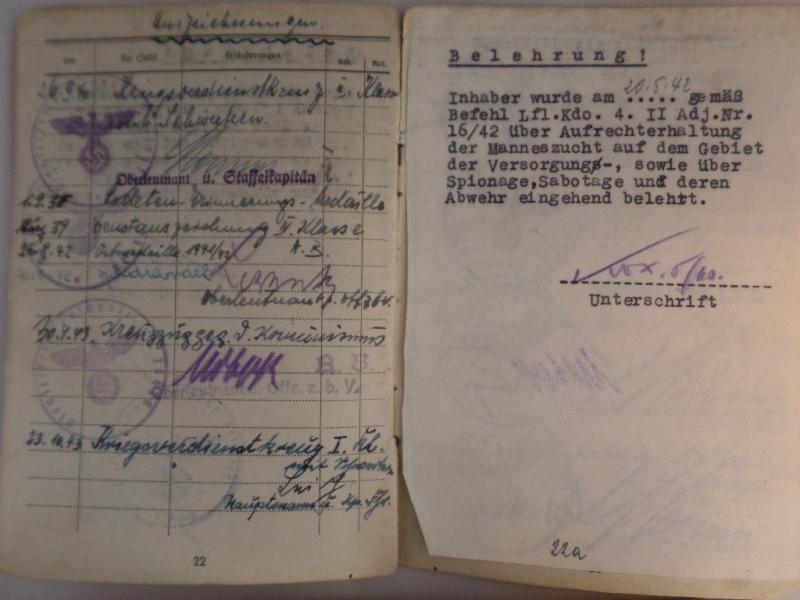 Auszeichnungen.
am für (Jahr) Erläuterungen
26.9.4 Kriegsverdienstkreuz 2. Klasse
mit Schwertern.
Oberleutnant u. Staffelkapitän
1.9.38 Sudeten-Erinnerungs-Medaille
39 Dienstauszeichnung IV. Klasse
26.8.42 Ostmedaille 1941/42 A. B.
Oberleutnant
30.4.43. Kreuzzug geg. d. Kommunismus
A. B.
Oberleutnant u. Offz. z. b. V.
23.10.43 Kriegsverdienstkreuz I. Kl.
mit Schwertern
Hauptmann u. Kp. Fhr.
22
Belehrung!
20.5.42
Inhaber wurde am ..... gemäß
Befehl Lfl.Kdo. 4. II Adj.Nr.
16/42 über Aufrechterhaltung
der Manneszucht auf dem Gebiet
der Versorgung-, sowie über
Spionage,Sabotage und deren
Abwehr eingehend belehrt.
Unterschrift
22a